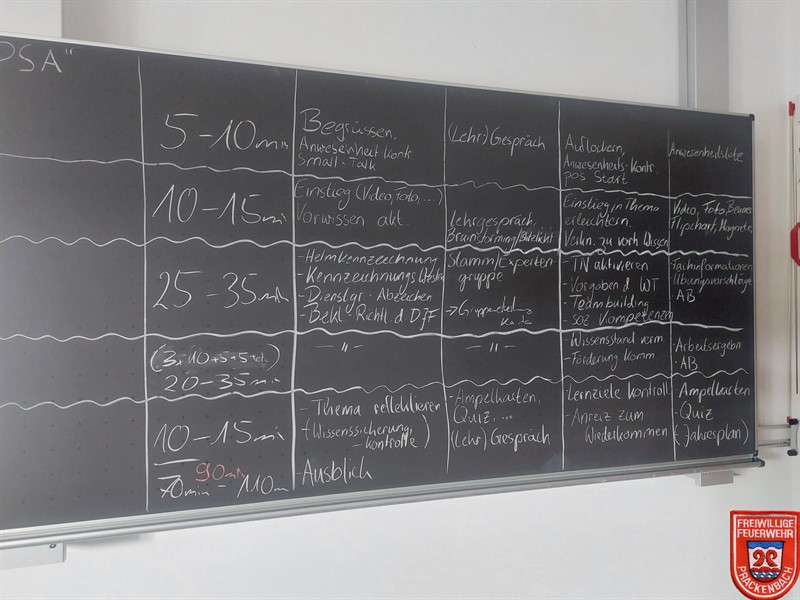 PSA"
5-10min
Begrüssen,
Anwesenheit Kontr.
Small-Talk
(Lehr)Gespräch
Auflockern,
Anwesenheits-Kontr.
pos Start
Anwesenheitsliste
10-15min
Einstieg (Video, Foto, ...)
Vorwissen akt.
Lehrgespräch,
Brainstorming/Blitzlicht
Einstieg in Thema
erleichtern.
Verkn. zu vorh Wissen
Video, Foto, Beamer
Flipchart, Magnete,
25-35min
-Helmkennzeichnung
-Kennzeichnungs
-Dienstgr. Abzeichen
-Bekl. Richtl. d DJF
Stamm/Experten-
gruppe
→Gruppen
-TN aktivieren
-Vorgaben d. WT
-Teambuilding
-soz Kompetenzen
Fachinformationen
Übungsvorschläge
AB
(3x10+5+5
20-35min
-"-
-"-
-Wissensstand verm.
-Förderung Komm
-Arbeitsergebn
-AB
10-15min
-Thema reflektieren
(Wissenssicherung,
-kontrolle)
-Ausblick
-Ampelkarten,
Quiz, ...
(Lehr)Gespräch
-Lernziele kontroll.
-Anreiz zum
Wiederkommen
-Ampelkarten
-Quiz
(Jahresplan)
90min
70min - 110m
FREIWILLIGE
FEUERWEHR
PRACKENBACH